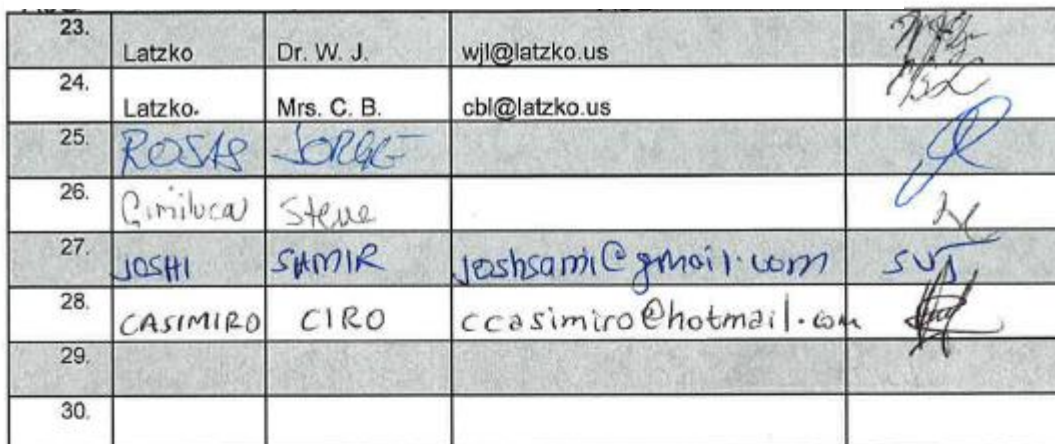 23. Latzko Dr. W. J. wjl@latzko.us
24. Latzko. Mrs. C. B. cbl@latzko.us
25. ROSAS JORGE
26. Steve
27. JOSHI SAMIR joshsami@gmail.com SVJ
28. CASIMIRO CIRO ccasimiro@hotmail.com
29.
30.